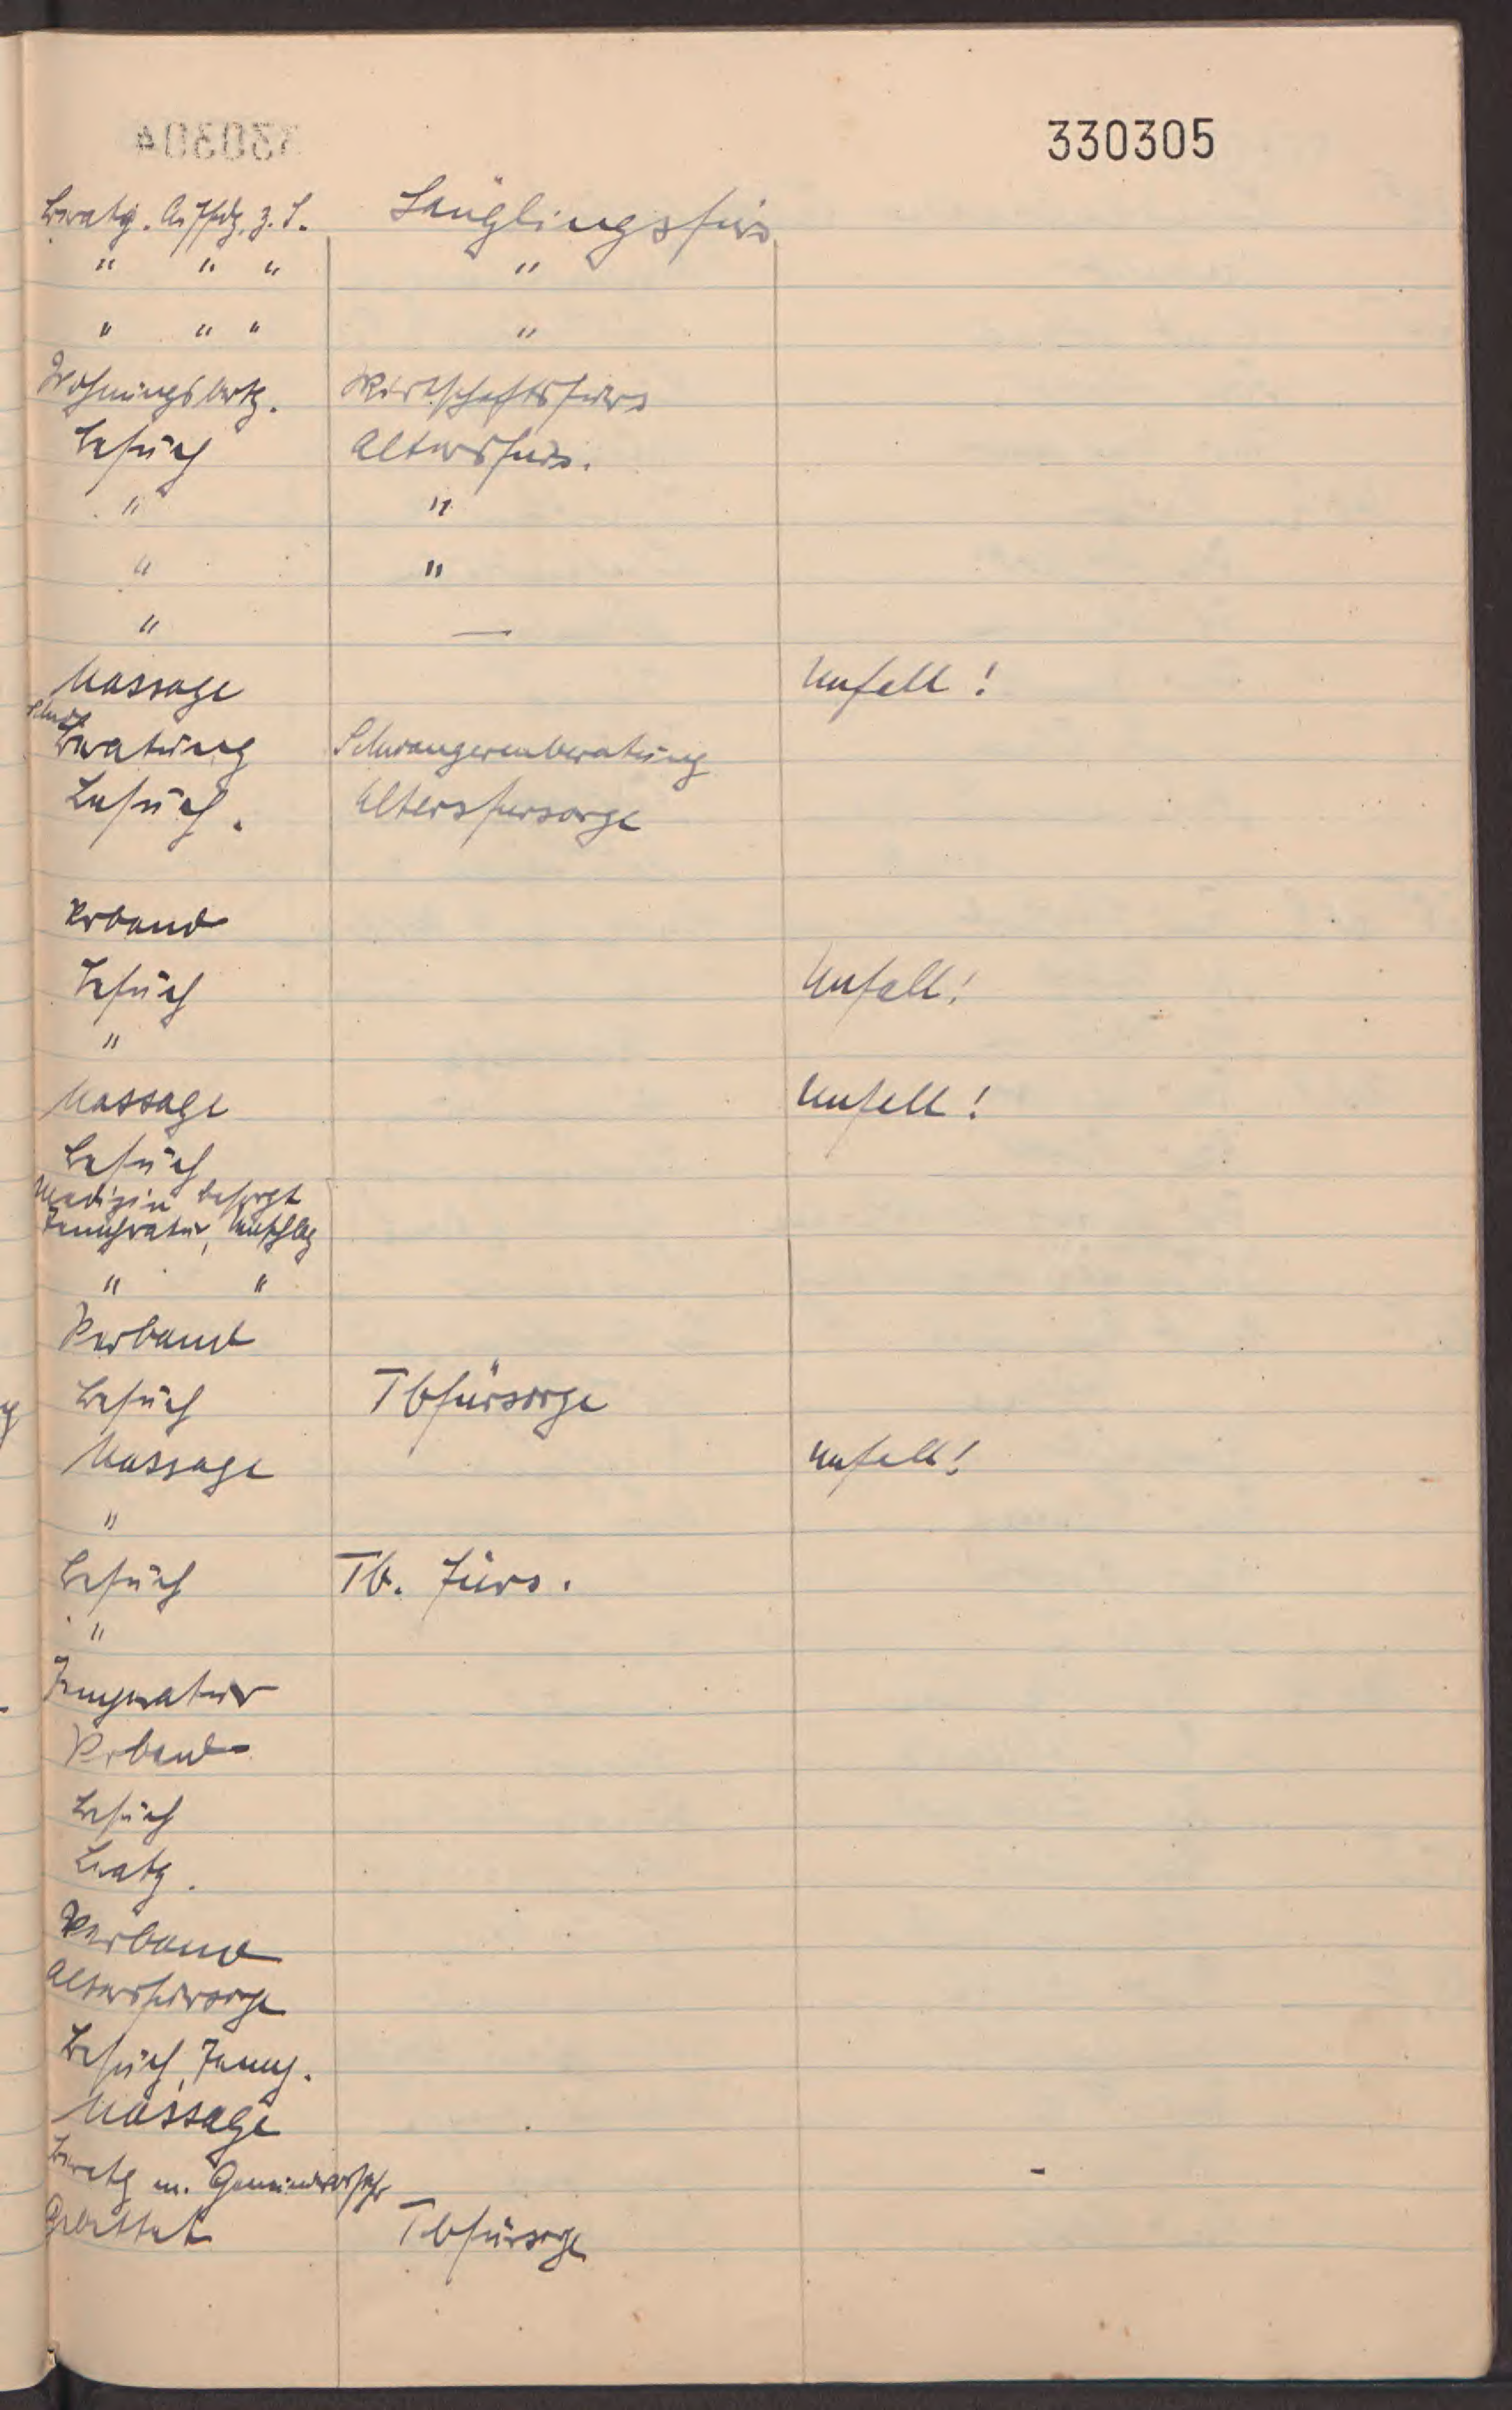 330305
Beratg. Auffdg. z. S. Säuglingsfürs
" " " "
" " " "
Wohnungsbertg. Wirtschaftsfürs
Besuch Altersfürs.
" "
" "
" —
Massage Unfall!
Beratung Schwangerenberatung
Besuch. Altersfürsorge
Verband
Besuch Unfall!
"
Massage Unfall!
Besuch
Medizin besorgt
Temperatur, Umschlag
" "
Verband
Besuch Tbfürsorge
Massage Unfall!
"
Besuch Tb. Fürs.
"
Temperatur
Verband
Besuch
Beratg.
Verband
Altersfürsorge
Besuch, Temp.
Massage
Beratg m.
Gebettet Tbfürsorge